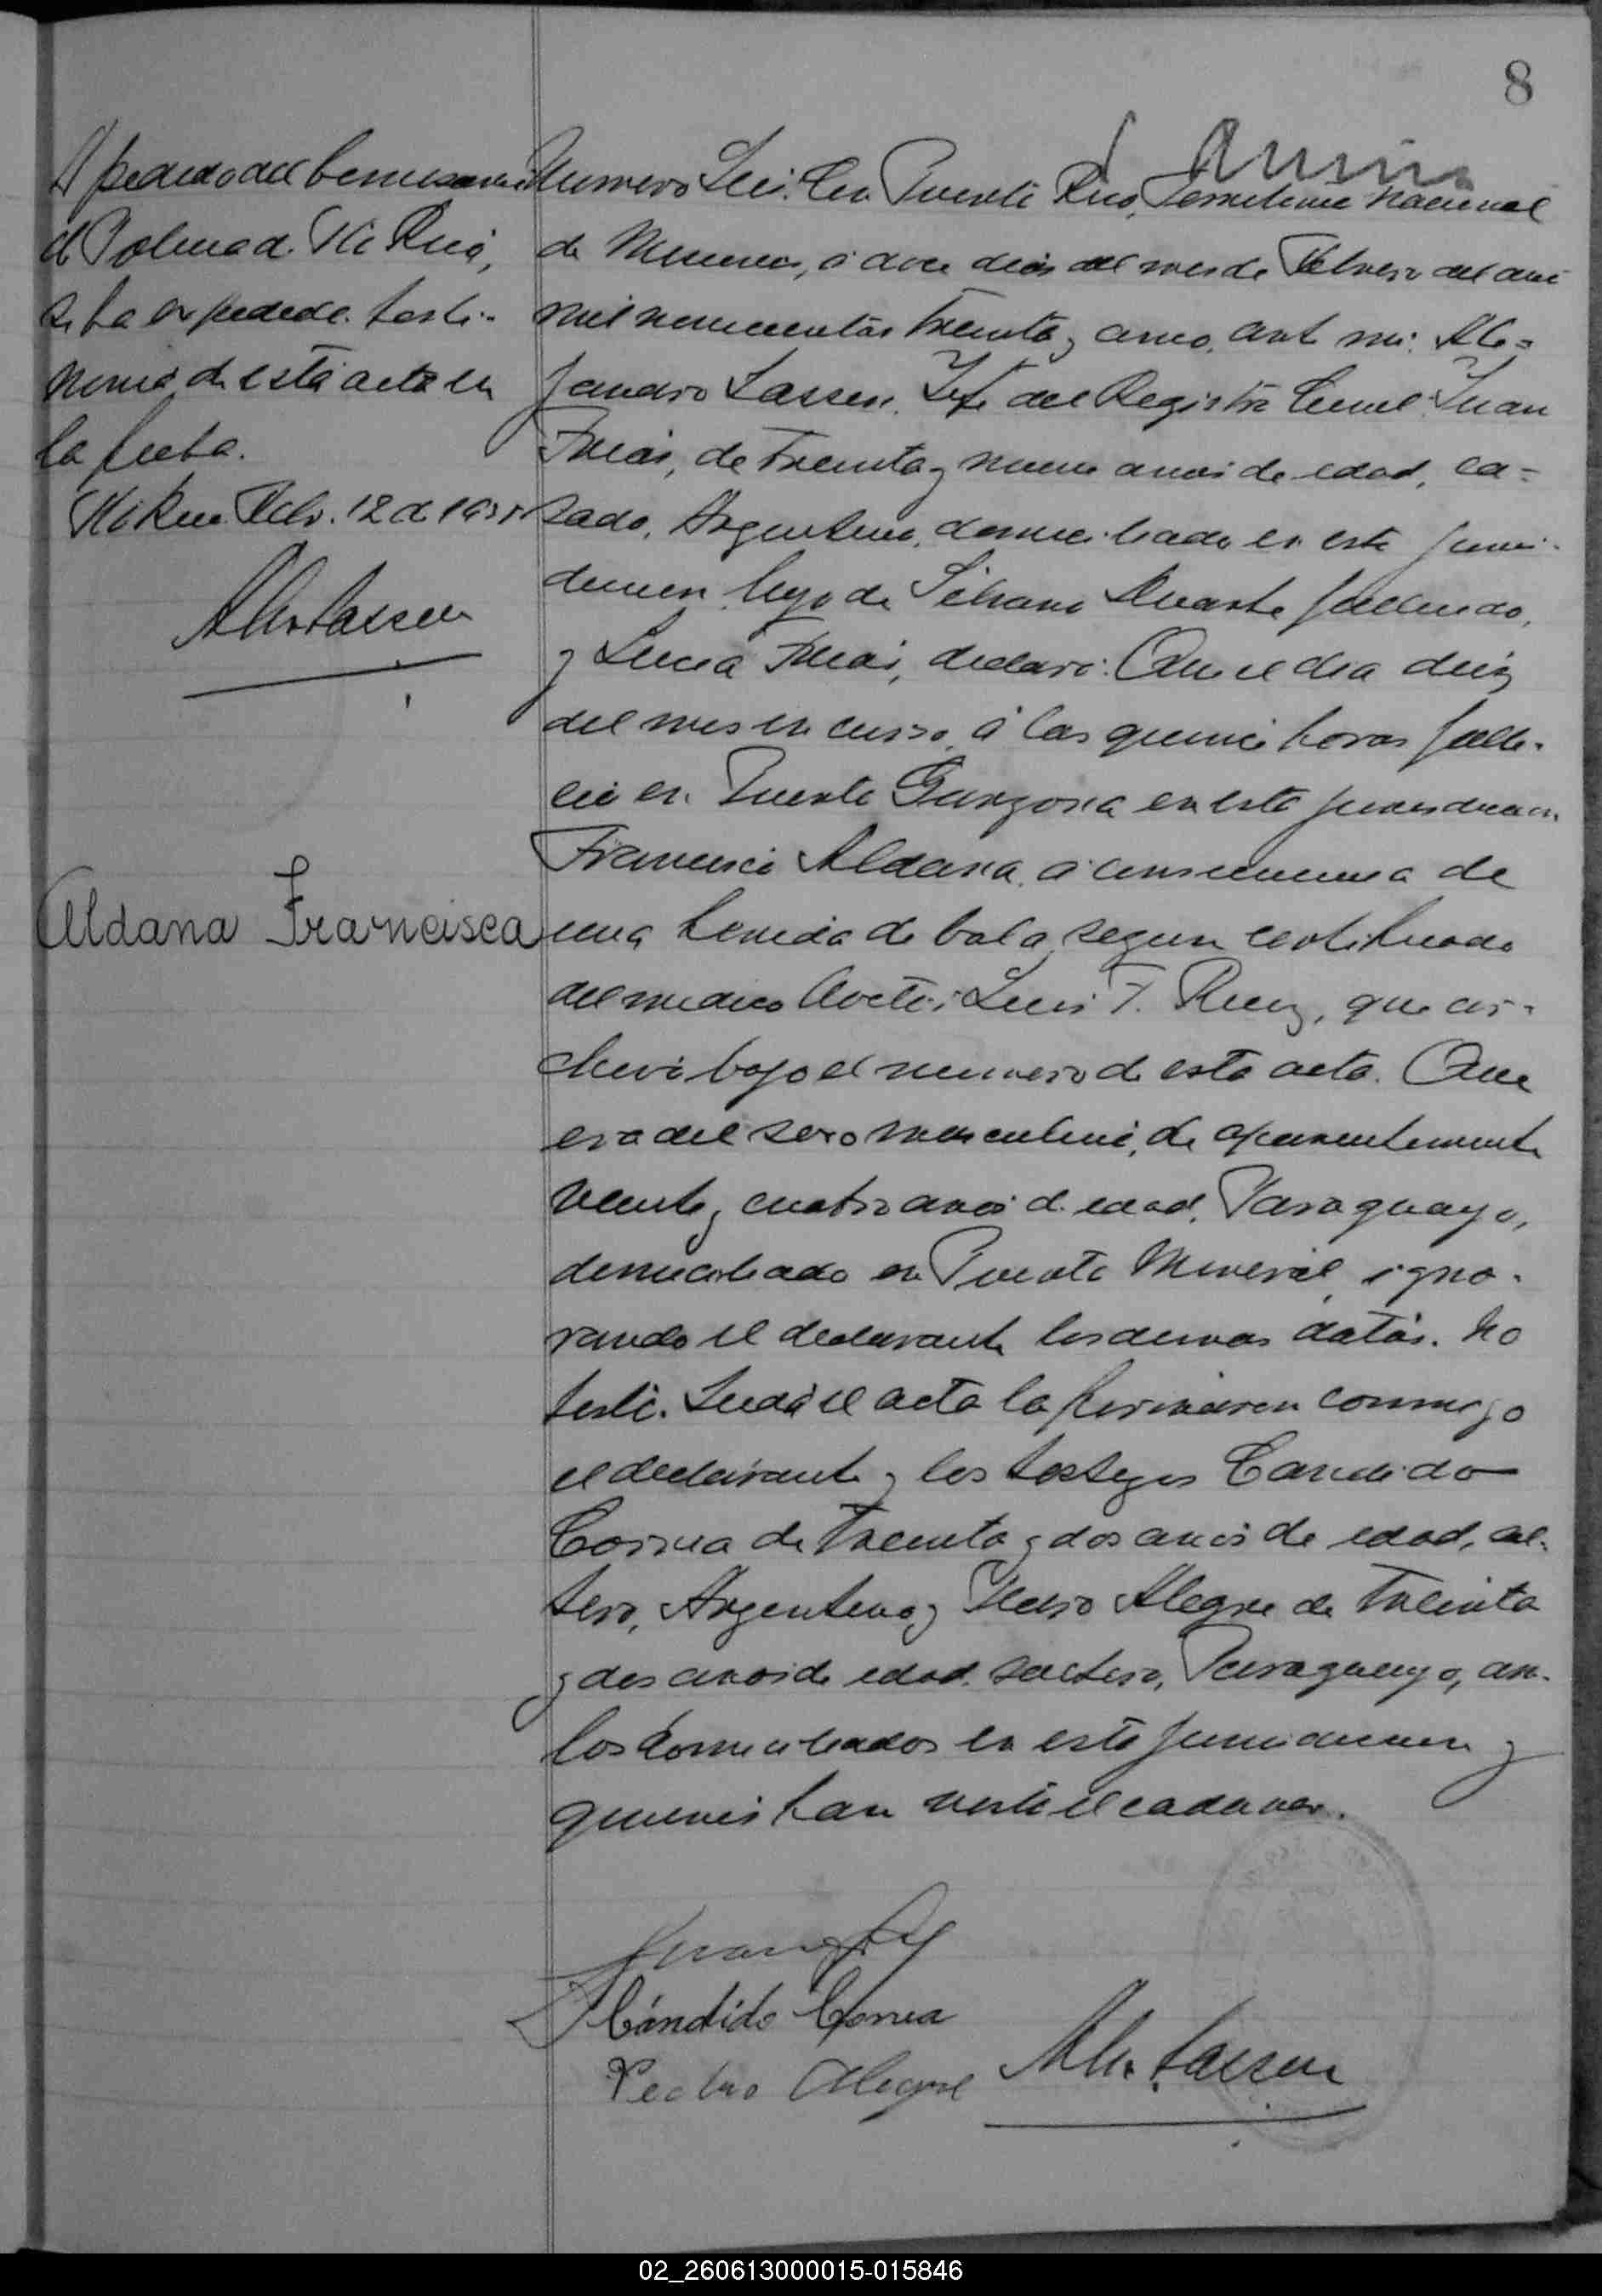 8
A pedido del Comisario
de Policia de Pto Rico,
se ha expedido testi-
monio de esta acta en
la fecha.
Pto Rico Feb. 12 de 1935
Alej Lassen
Aldana Francisca
Numero Seis. En Puerto Rico, Territorio Nacional
de Misiones, a doce dias del mes de Febrero del año
mil novecientos treinta y cinco, ante mi: Ale-
jandro Lassen, Jefe del Registro Civil: Juan
Frias, de treinta y nueve años de edad, ca-
sado, Argentino, domiciliado en esta juris-
diccion hijo de Silvano Duarte fallecido,
y Lucia Frias, declaró: Que el dia diez
del mes en curso, á las quince horas falle-
ció en Puerto Garzona en esta jurisdiccion
Francisco Aldana, a consecuencia de
una herida de bala, segun certificado
del medico Doctor Luis F. Ruiz, que ar-
chivo bajo el numero de esta acta. Que
era del sexo masculino, de aparentemente
veinte y cuatro años de edad, Paraguayo,
domiciliado en Puerto Mineral, igno-
rando el declarante los demas datos. No
testó. Leida el acta la firmaron conmigo
el declarante y los testigos Candido
Correa de treinta y dos años de edad, sol-
tero, Argentino y Pedro Alegre de treinta
y dos años de edad, soltero, Paraguayo, am-
bos domiciliados en esta jurisdiccion y
quienes han visto el cadaver.
Cándido Correa
Pedro Alegre
Alej. Lassen
02_260613000015-015846